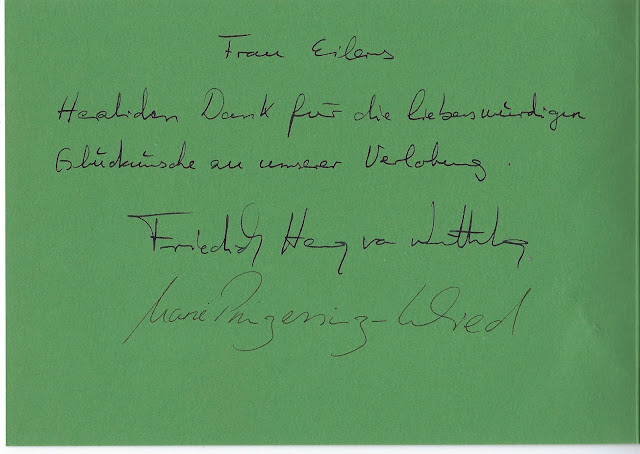 Frau Eilers
Herzlichen Dank für die liebenswürdigen
Glückwünsche zu unserer Verlobung.
Friedrich Herzog von Württemberg
Marie Prinzessin z. Wied